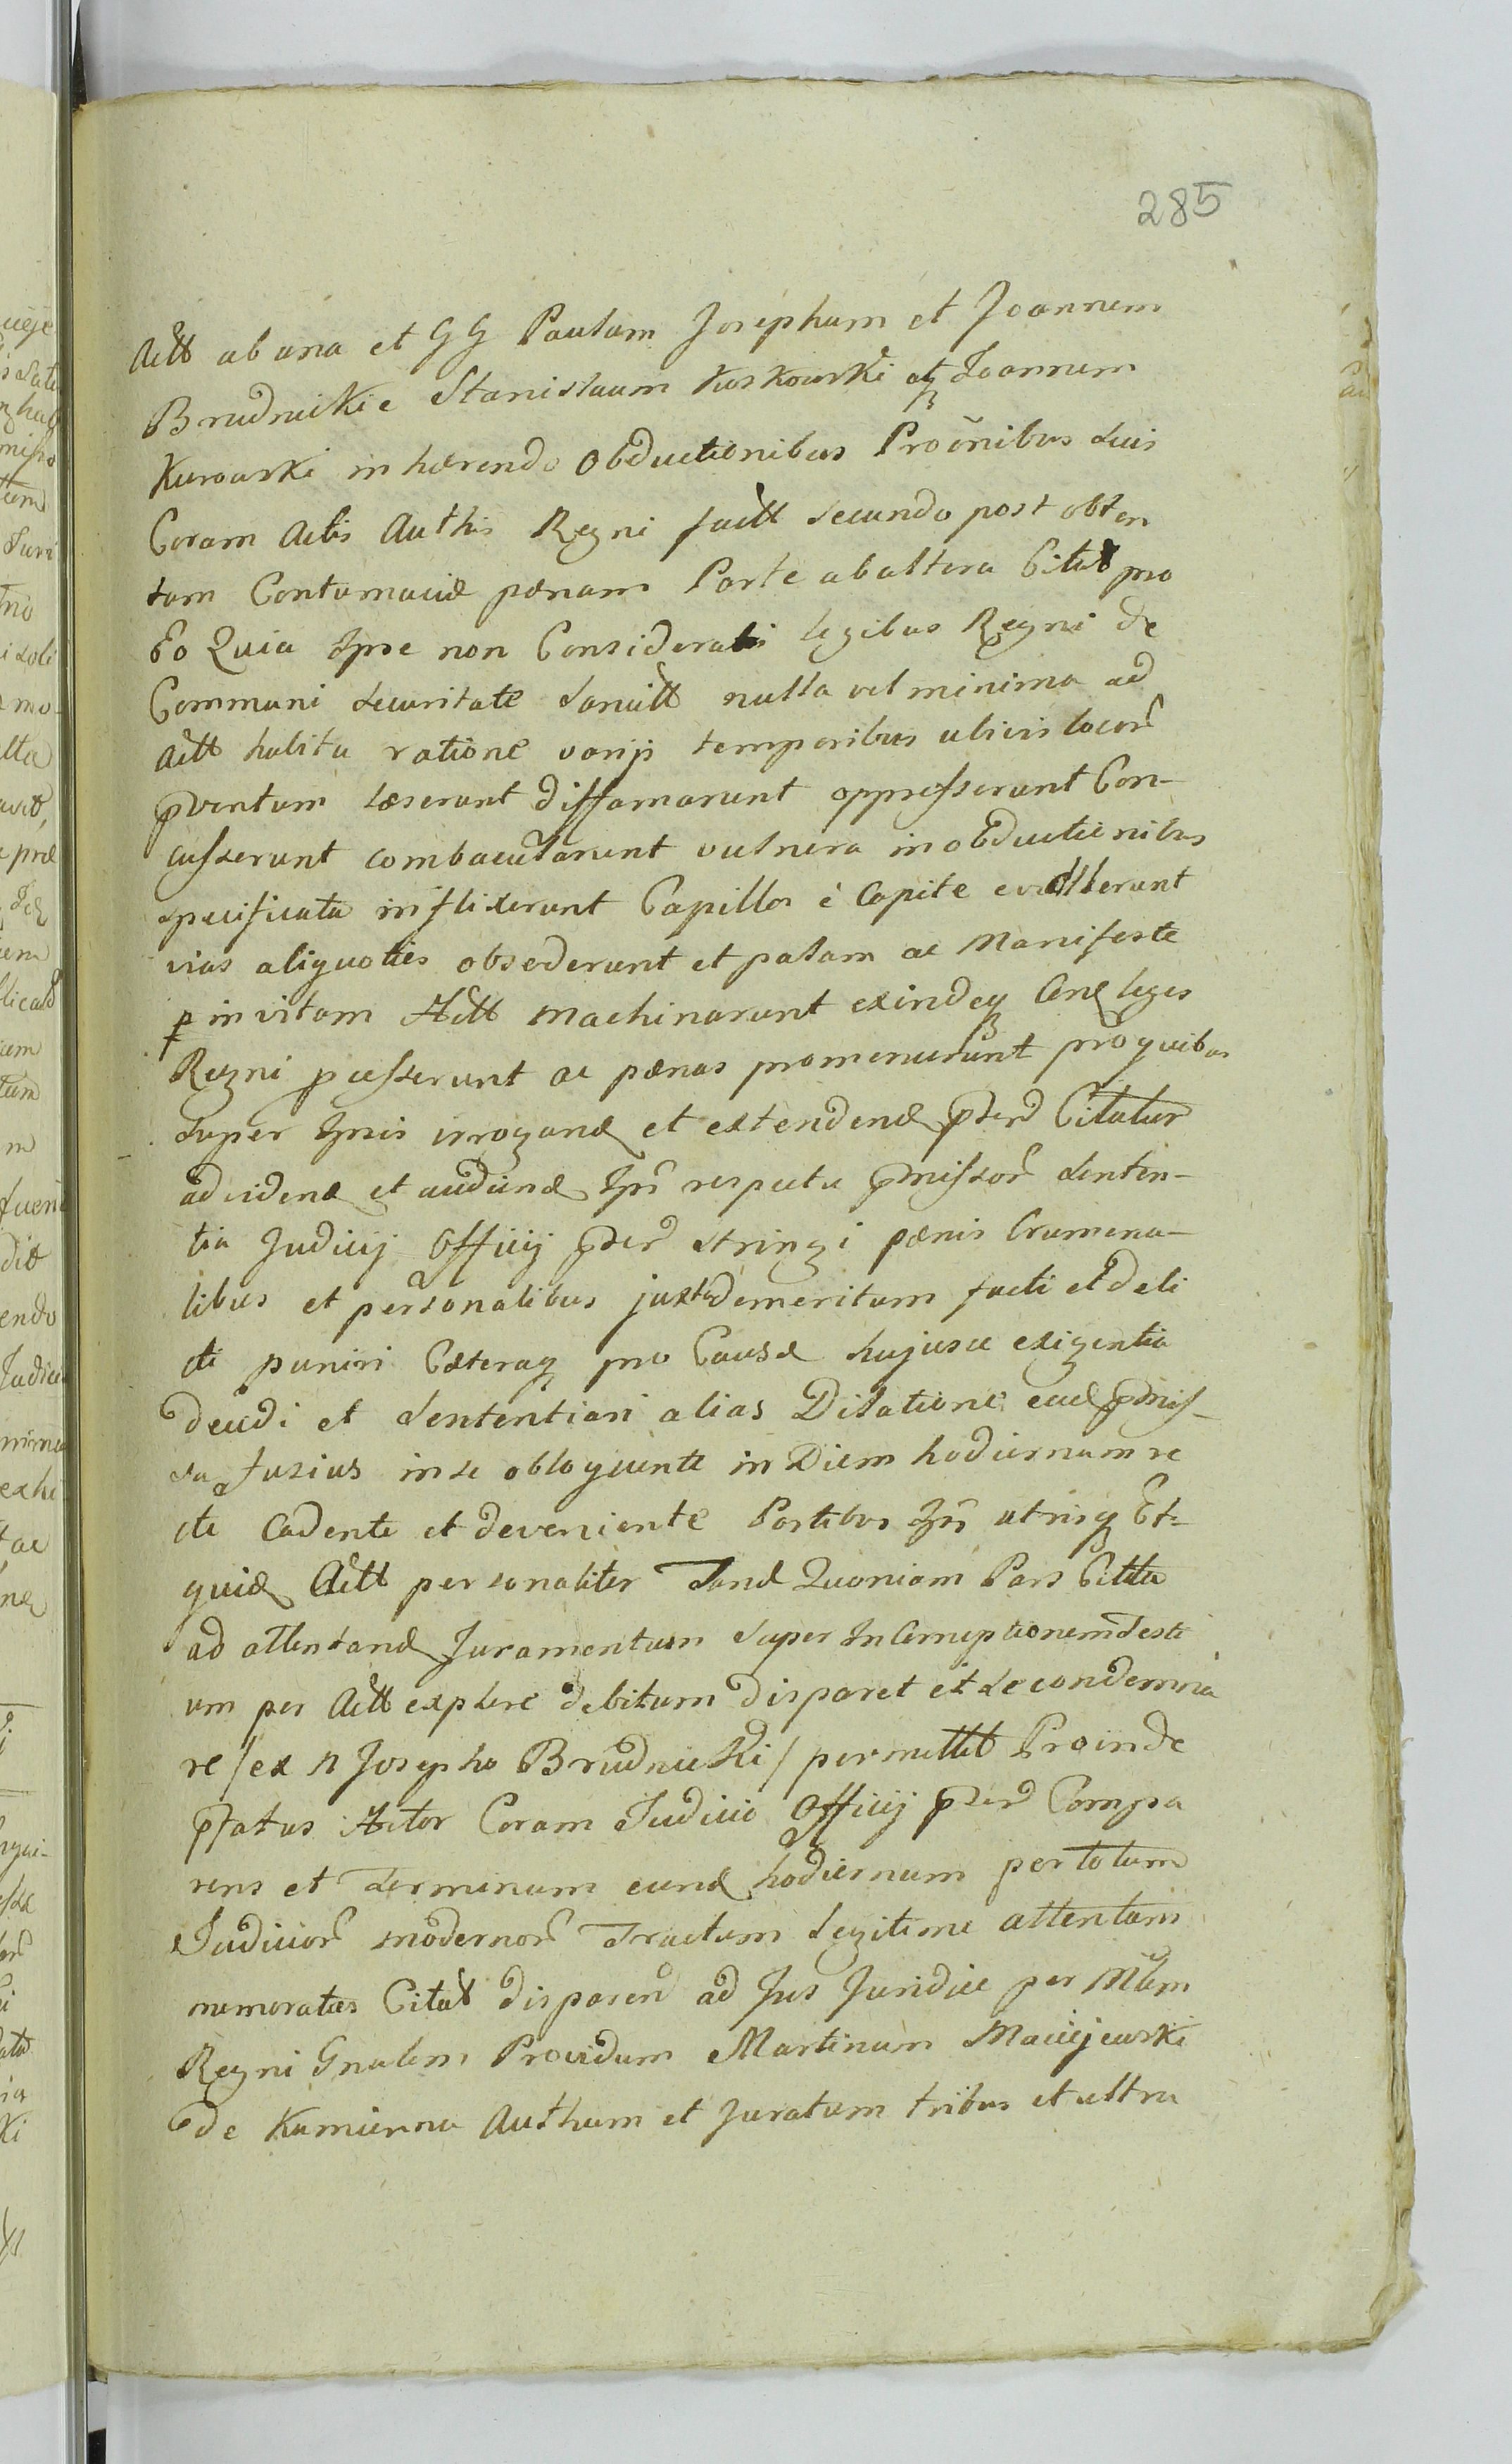 285
Actt ab una et GG Paulum Josephum et Joannem
Brudnickie Stanislaum Kuskowski atq Joannem
Kurowski inhærendo Obductionibus Proōnibus suis
Coram Actis Authis Regni factt secundo post obten
tam Contumaciæ pænam Parte ab altera Citat pro
Eo Quia Ipse non Consideratis legibus Regni de
Communi securitate sancitt nulla vel minima ad
Actt habita ratione varijs temporibus ubivis locor̃
pventum læserunt diffamarunt oppresserunt Con-
cusserunt combacularunt vulnera in obductionibus
specificata inflixerunt Capillos è Capite evellerunt
vias aliquoties obsederunt et palam ac Manifeste
p in vitam Actt machinarunt exindeq Cend leges
Regni pcesserunt ac pænas promeruerunt pro quibus
super Ipsis irrogand et extendend pter Citatur
ad vidend et audiend Ipsr̃ respectu pmissor̃ senten-
tia Judicij Officij pter stringi pænis Crumena-
libus et personalibus juxta demeritum facti et deli
cti puniri Cæteraq pro Causæ hujusce exigentia
decidi et sententiari alias Dilatione ead pmis-
sa fusius in se obloquente in Diem hodiernum re
cte Cadente et deveniente Partibus Ipsr̃ utrisq Et-
quid Actt personaliter Tand Quoniam Pars Citta
ad attentand Juramentum super Inconruptionem Testi
um per Actt explere debitum disparet et se condemna
re /ex N Josepho Brudnicki/ permittit Proinde
pfatus Actor Coram Judicio Officij pter Compa
rens et Terminum eund hodiernum per totum
Judicior̃ modernor̃ Tractum Legitime attentans
memoratos Citat disparen ad Jus Juridice per Mlem
Regni Gnalem Providum Martinum Maciejewski
de Kamienna Authum et Juratum tribus et ultra